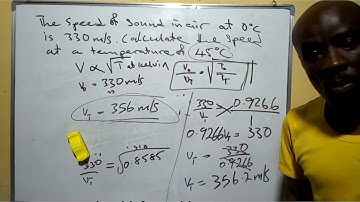 The speed of sound in air at 0°C
is 330 m/s. Calculate the speed
at a temperature of 45°C
V ∝ √T at kelvin
V₀ = 330 m/s
V₀/V_T = √T₀/T_T
V_T = 356 m/s
330/V_T = √0.8585
330/V_T 0.9266
0.9266V_T = 330
V_T = 330/0.9266
V_T = 356.2 m/s